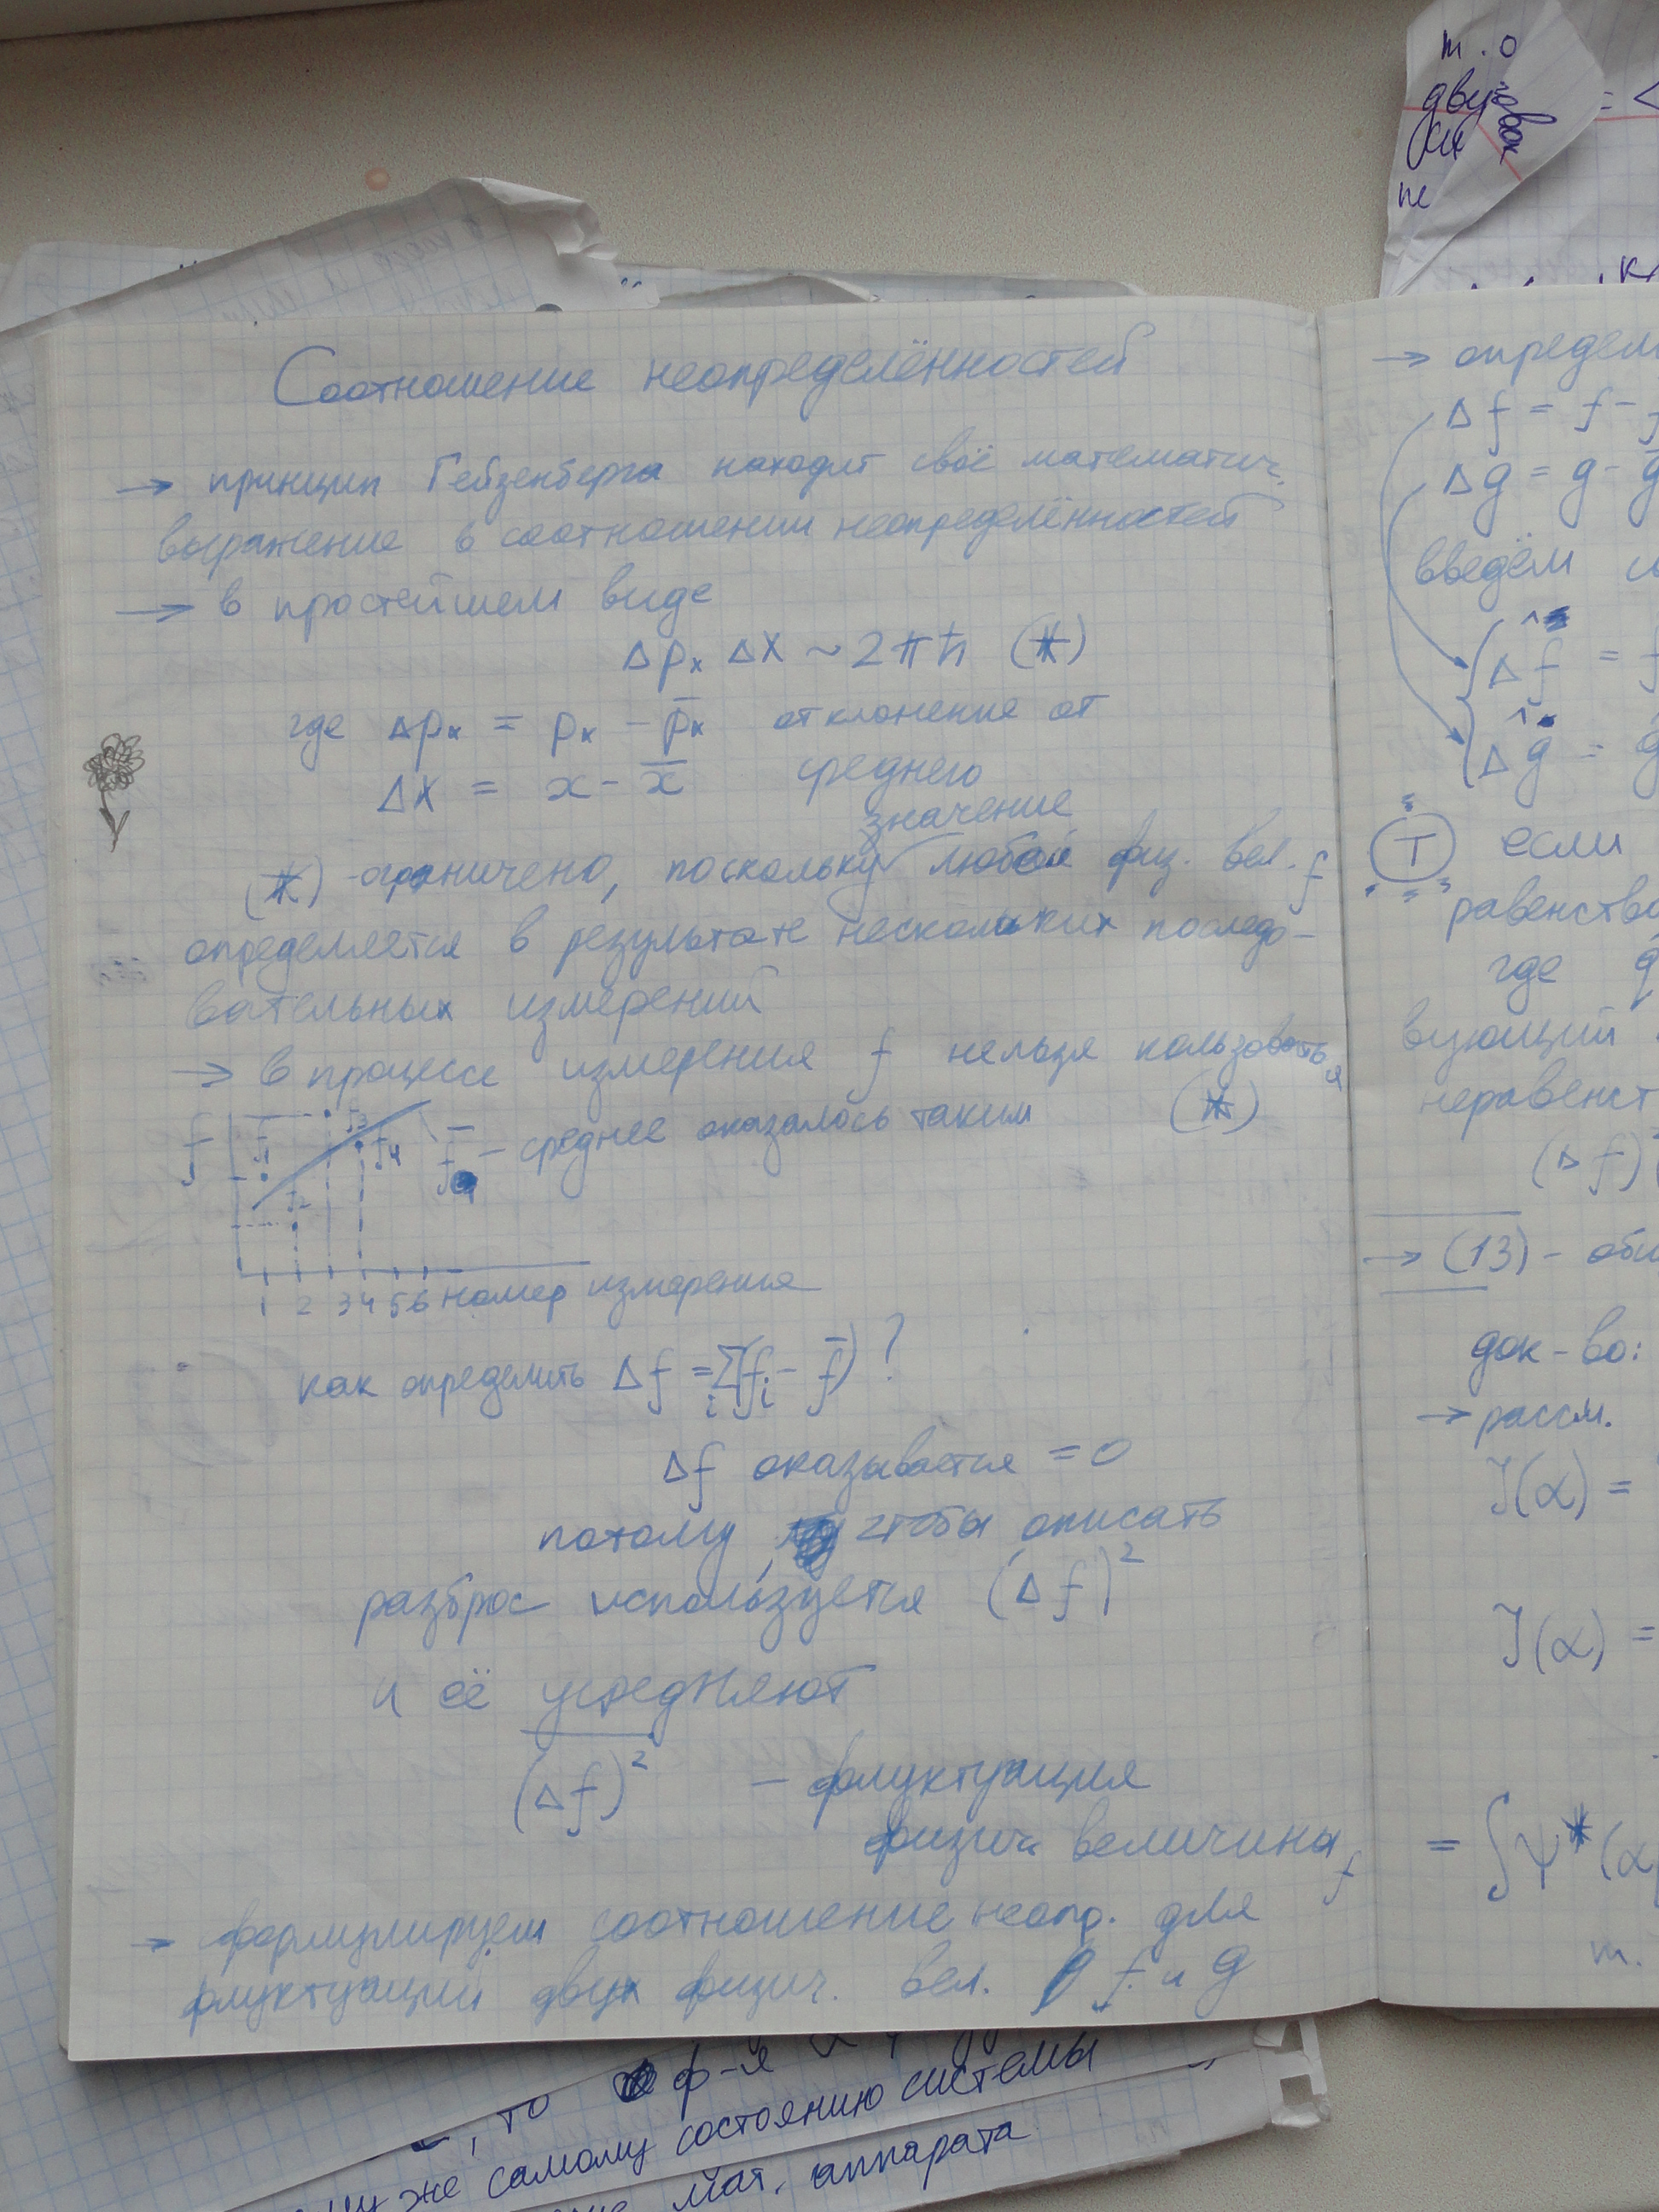 Соотношение неопределённостей
→ принцип Гейзенберга находит своё математич.
выражение в соотношении неопределённостей
→ в простейшем виде
Δpₓ Δx ~ 2πħ (*)
где Δpₓ = pₓ - p̄ₓ отклонение от
Δx = x - x̄ среднего
значение
(*) - ограничено, поскольку любой физ. вел. f
определяется в результате нескольких последо-
вательных измерений
→ в процессе измерения f нельзя пользоваться
(*)
f f₁ f₂ f₃ f₄ f̄ - среднее оказалось таким
1 2 3 4 5 6 номер измерения
как определить Δf = Σᵢ(fᵢ - f̄) ?
Δf оказывается = 0
потому чтобы описать
разброс используется (Δf)²
и её усредняют
(Δf)² - флуктуация
физич. величины f
→ формулируем соотношение неопр. для
флуктуаций двух физич. вел. f и g
→ определ
Δf = f -
Δg = g - ḡ
введём
Δf̂ = f
Δĝ = ĝ
Т если
равенство
где
вующий
неравенст
(Δf)
→ (13) -
док-во:
→ рассм.
J(α) =
J(α) =
= ∫ψ*(α
т.
т.о
дву
не
, то ф-я
же самому состоянию системы
мат. аппарата